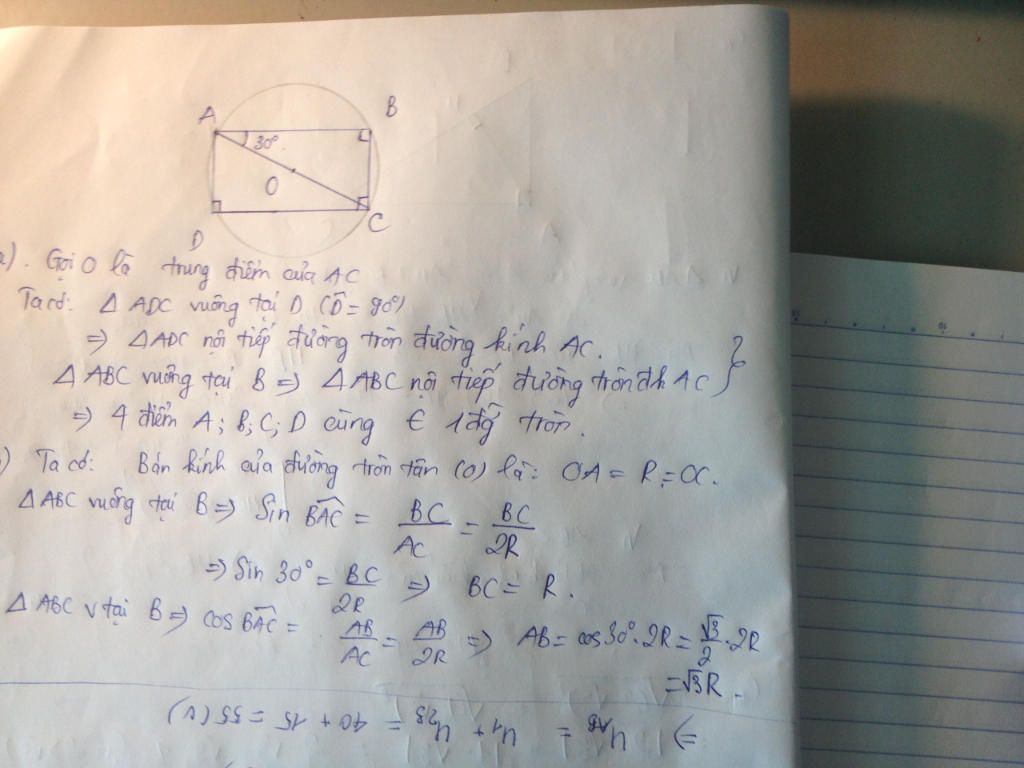 A
B
30°
O
C
D
a). Gọi O là trung điểm của AC
Ta có: Δ ADC vuông tại D (D̂ = 90°)
=> ΔADC nội tiếp đường tròn đường kính AC.
Δ ABC vuông tại B => Δ ABC nội tiếp đường tròn đk AC }
=> 4 điểm A; B; C; D cùng ∈ 1 đg tròn.
) Ta có: Bán kính của đường tròn tân (O) là: OA = R = OC.
Δ ABC vuông tại B => Sin BAC = BC/AC = BC/2R
=> Sin 30° = BC/2R => BC = R.
Δ ABC v tại B => cos BAC = AB/AC = AB/2R => AB = cos 30° . 2R = √3/2 . 2R
= √3R.
=> U_AB = U_1 + U_23 = 40 + 15 = 55 (V)